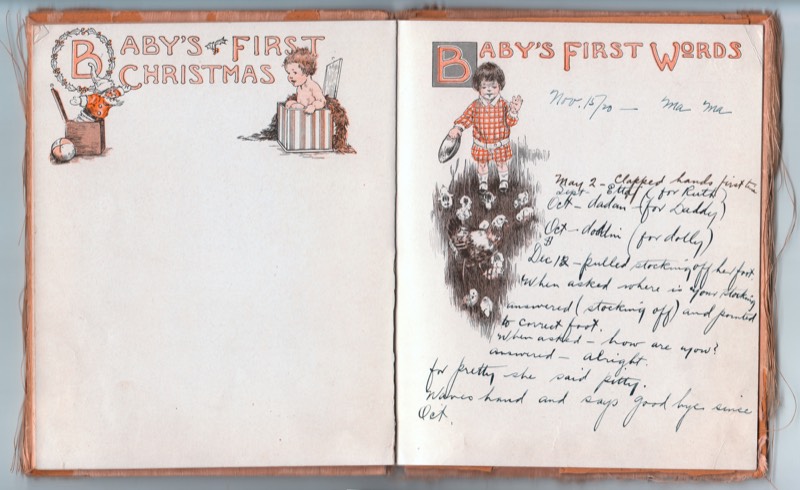 BABY'S FIRST
CHRISTMAS
BABY'S FIRST WORDS
Nov. 15/20 — Ma Ma
May 2 - Clapped hands first time
Sept - (for Ruth)
Oct - dadan - (for Daddy)
Oct - (for dolly)
Dec 12 - pulled stocking off her foot
When asked where is your stocking
answered (stocking off) and pointed
to correct foot.
When asked - how are you?
answered - alright.
for pretty she said pitty.
Waves hand and says good bye since
Oct.